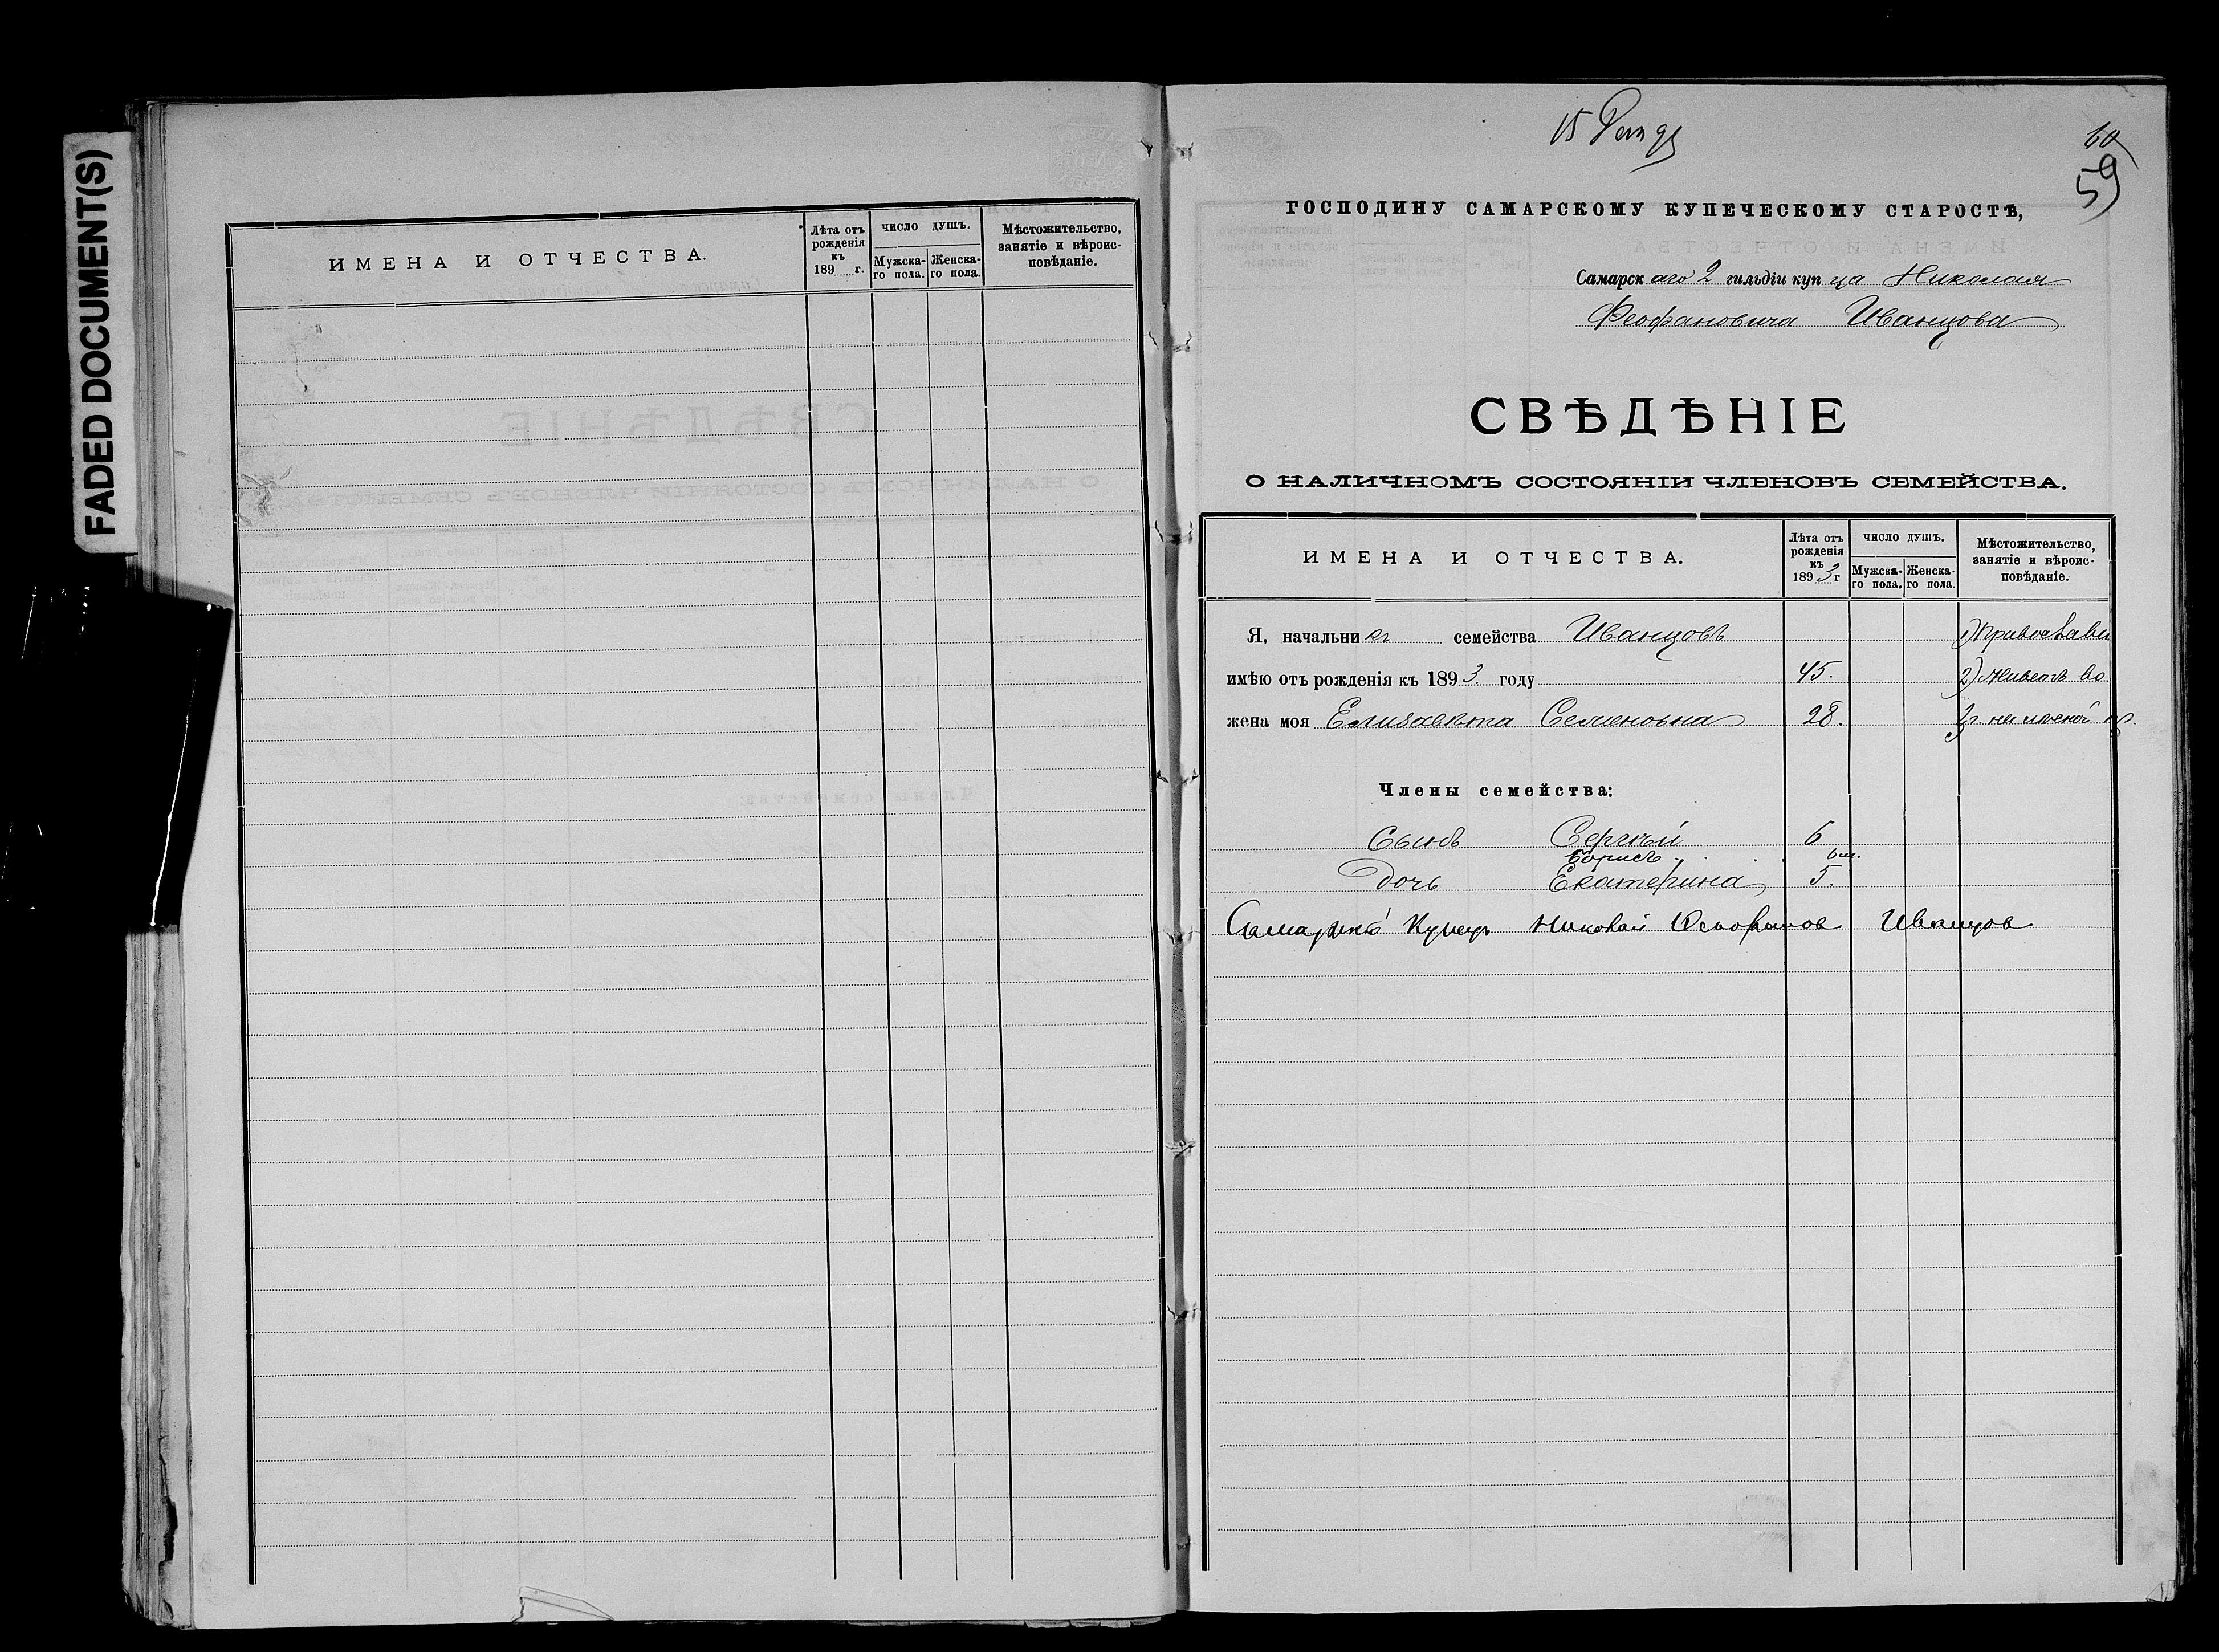 FADED DOCUMENT(S)
ИМЕНА И ОТЧЕСТВА.
Лѣта отъ рожденія къ 189 г.
ЧИСЛО ДУШЪ.
Мужска-го пола.
Женска-го пола.
Мѣстожительство, занятіе и вѣроис-повѣданіе.
15
60
59
ГОСПОДИНУ САМАРСКОМУ КУПЕЧЕСКОМУ СТАРОСТѢ,
Самарскаго 2 гильдіи купца Николая
Феофановича Иванцова
СВѢДѢНІЕ
О НАЛИЧНОМЪ СОСТОЯНІИ ЧЛЕНОВЪ СЕМЕЙСТВА.
ИМЕНА И ОТЧЕСТВА.
Лѣта отъ рожденія къ 1893 г
ЧИСЛО ДУШЪ.
Мужска-го пола.
Женска-го пола.
Мѣстожительство, занятіе и вѣроис-повѣданіе.
Я, начальникъ семейства Иванцовъ 1)
имѣю отъ рожденія къ 1893 году 45. 2) живетъ во
жена моя Елизавета Семеновна 28. 2г.
Члены семейства:
Сынъ Сергѣй 6
Борисъ 6 м.
Дочь Екатерина 5.
Купецъ Николай Иванцов